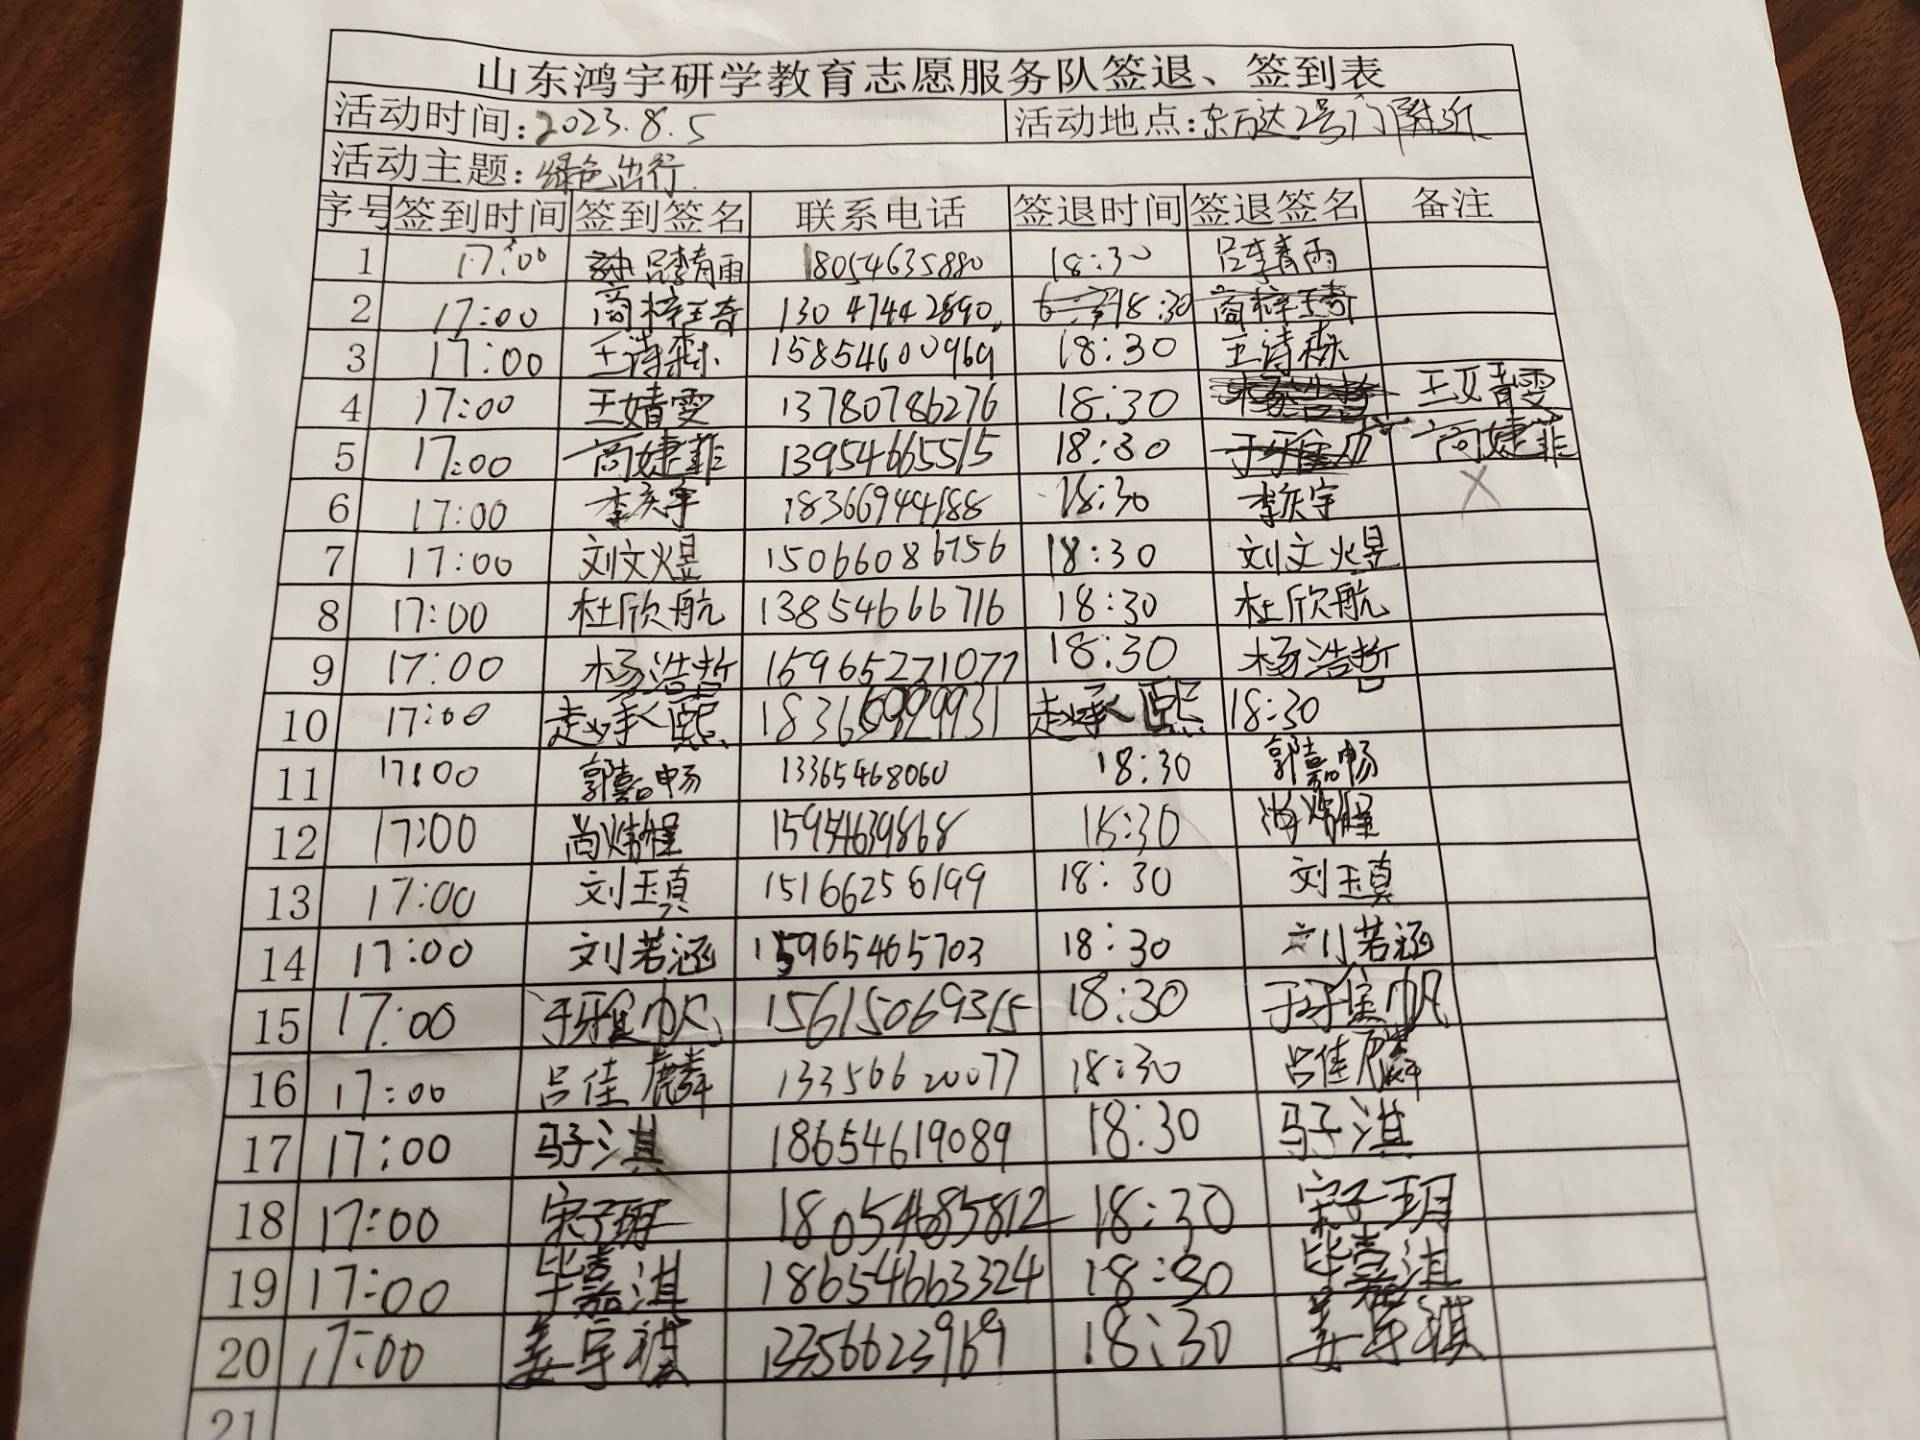 山东鸿宇研学教育志愿服务队签退、签到表
活动时间:2023.8.5 活动地点:东万达2号门附近
活动主题:绿色出行
序号 签到时间 签到签名 联系电话 签退时间 签退签名 备注
1 17:00 吕李青雨 18054635880 18:30 吕李青雨
2 17:00 商梓琦 13047442890 18:30 商梓琦
3 17:00 王诗森 15854600969 18:30 王诗森
4 17:00 王婧雯 13780786276 18:30 杨浩哲 王婧雯
5 17:00 商婕菲 13954665515 18:30 于雅帆 商婕菲
6 17:00 李庆宇 18366944188 18:30 李庆宇 X
7 17:00 刘文煜 15066086756 18:30 刘文煜
8 17:00 杜欣航 13854666716 18:30 杜欣航
9 17:00 杨浩哲 15965271077 18:30 杨浩哲
10 17:00 赵承熙 赵承熙 18:30
11 17:00 郭嘉畅 13365468060 18:30 郭嘉畅
12 17:00 尚炜程 15954639868 18:30 尚炜程
13 17:00 刘玉真 15166256199 18:30 刘玉真
14 17:00 刘若涵 15965465703 18:30 刘若涵
15 17:00 于雅帆 15615069315 18:30 于雅帆
16 17:00 吕佳麟 13356620077 18:30 吕佳麟
17 17:00 马子淇 18654619089 18:30 马子淇
18 17:00 宋子玥 18054685812 18:30 宋子玥
19 17:00 毕嘉淇 18654663324 18:30 毕嘉淇
20 17:00 姜宇祺 13356623969 18:30 姜宇祺
21